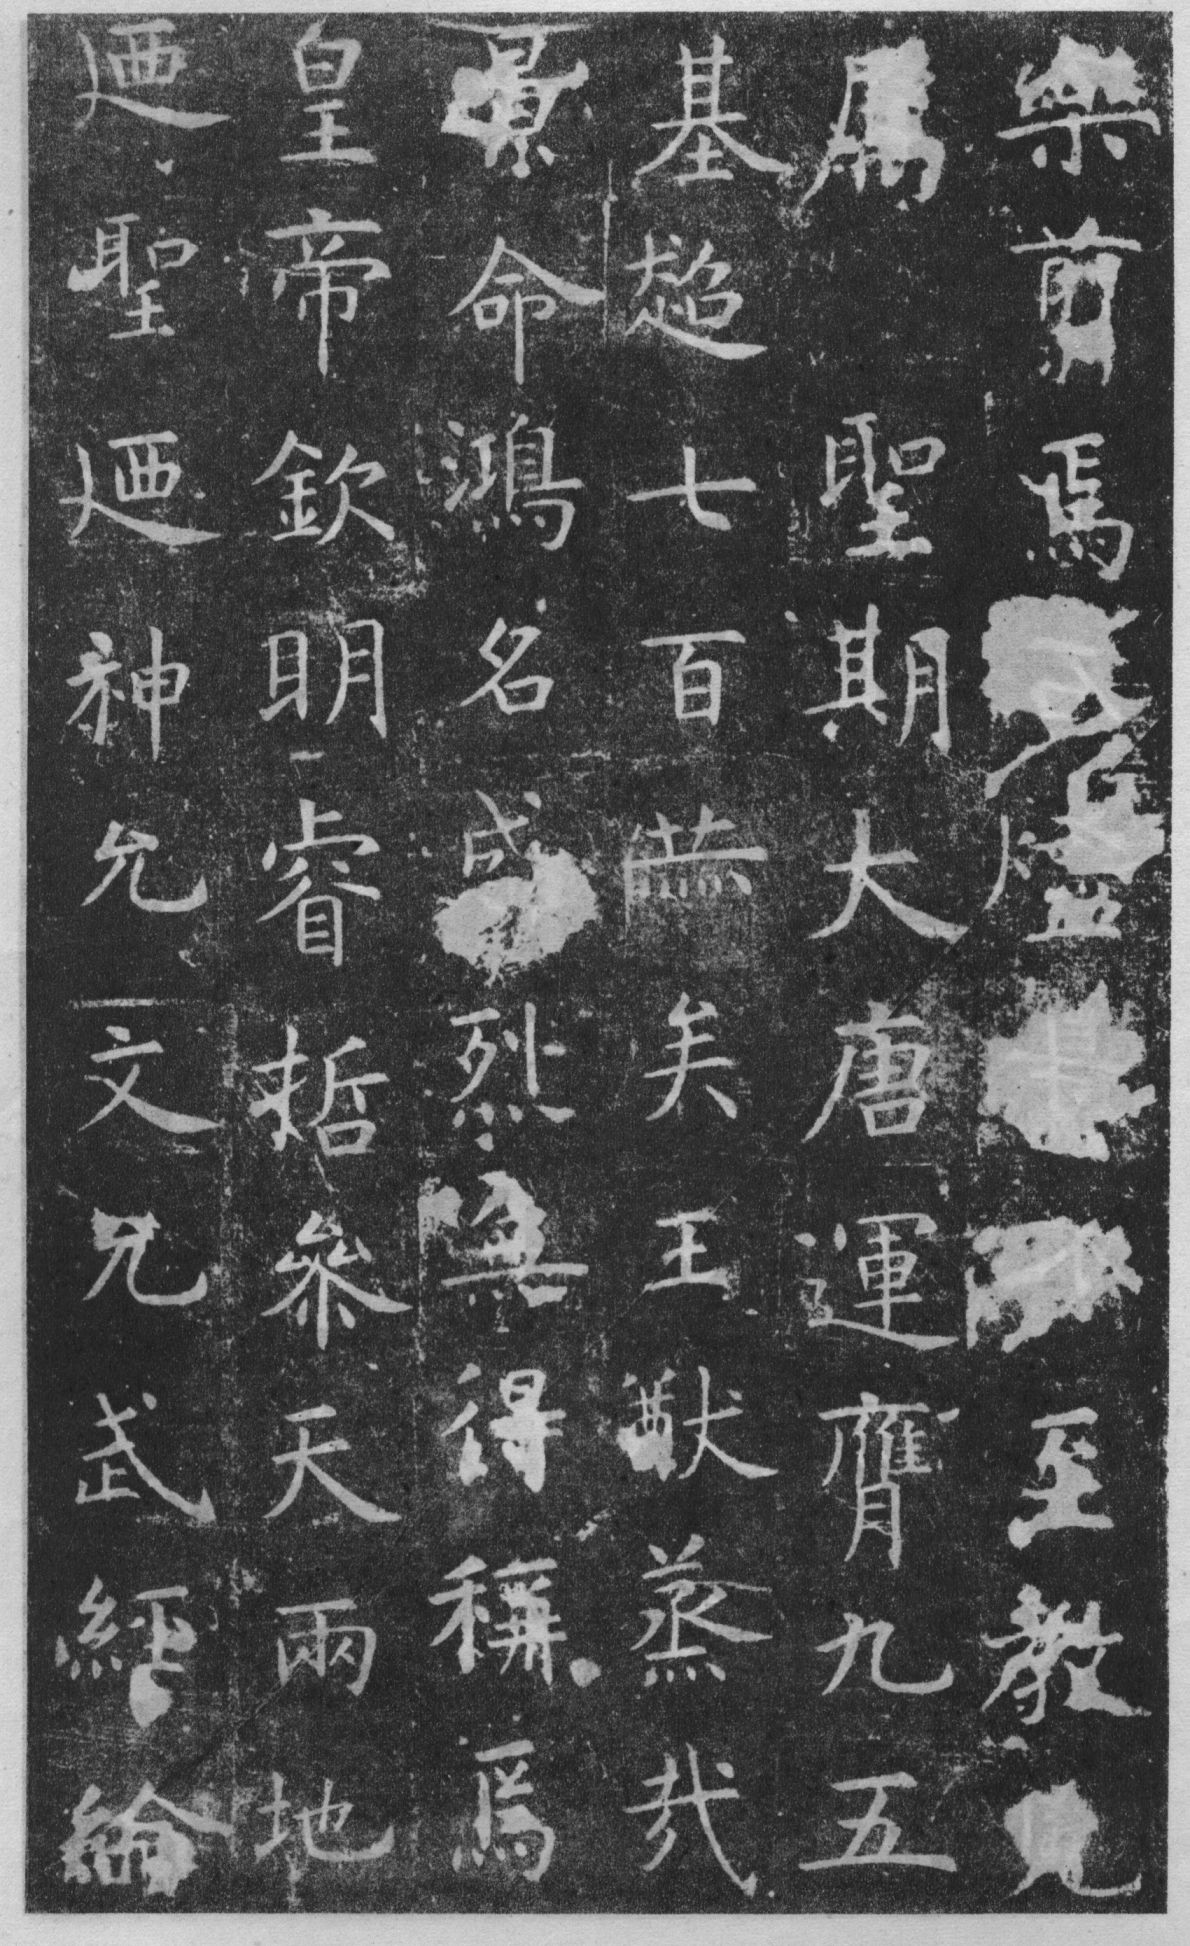 樂翦焉煨燼重弘至教允
屬聖期大唐運膺九五
基超七百赫矣王猷蒸哉
景命鴻名盛烈無得稱焉
皇帝欽明睿哲參天兩地
迺聖迺神允文允武經綸